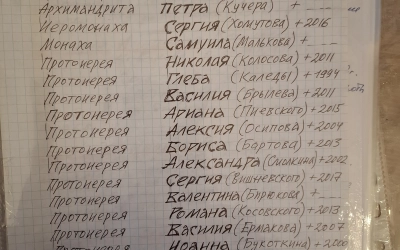 Архимандрита Петра (Кучера) + _ _ _
Иеромонаха Сергия (Хомутова) +2016
Монаха Самуила (Малькова) + _ _ _
Протоиерея Николая (Колосова) +2011
Протоиерея Глеба (Каледы) +1994
Протоиерея Василия (Брылева) +2011
Протоиерея Ариана (Пневского) +2015
Протоиерея Алексия (Осипова) +2004
Протоиерея Бориса (Бартова) +2013
Протоиерея Александра +2002
Протоиерея Сергия (Вишневского) +2017
Протоиерея Валентина (Бирюкова) + _ _ _
Протоиерея Романа (Косовского) +2013
Протоиерея Василия (Ермакова) +2007
Протоиерея Иоанна (Букоткина) +2000